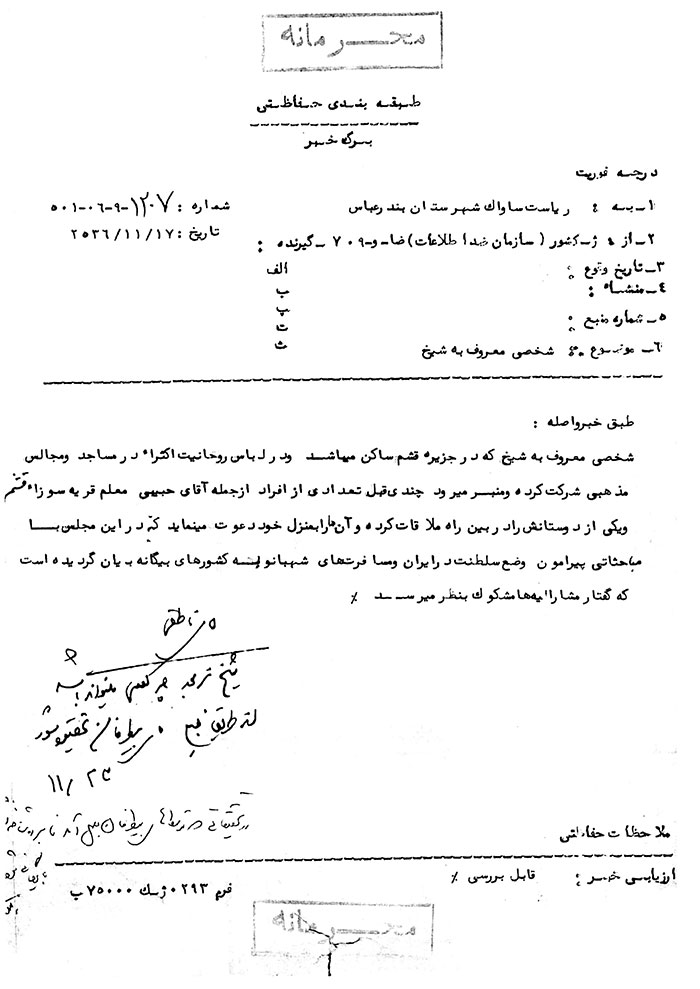 محرمانه
طبقه بندی حفاظتی
برگ خبر
درجه فوریت
۱ـ به : ریاست ساواک شهرستان بندرعباس
شماره : ۱۲۰۷-۹-۰۶-۵۰۱
۲ـ از : ژـ کشور ( سازمان ضد اطلاعات ) ضا-و-۷۰۹ ـ گیرنده :
تاریخ : ۲۵۳۶/۱۱/۱۷
۳ـ تاریخ وقوع : الف
۴ـ منشاء : ب
پ
۵ـ شماره منبع : ت
۶ـ موضوع : شخصی معروف به شیخ ث
طبق خبر واصله :
شخصی معروف به شیخ که در جزیره قشم ساکن میباشد و در لباس روحانیت اکثراً در مساجد و مجالس
مذهبی شرکت کرده و منبر میرود چندی قبل تعدادی از افراد ازجمله آقای حبیبی معلم قریه سوزاء قشم
ویکی از دوستانش را در بین راه ملاقات کرده و آن ها را بمنزل خود دعوت مینماید که در این مجلس با
مباحثاتی پیرامون وضع سلطنت در ایران ومسافرت های شهبانو به کشورهای بیگانه بیان گردیده است
که گفتار مشارالیه ها مشکوک بنظر میرسد ٪
شیخ
تحقیق شود
۱۱/۲۳
ملاحظات حفاظتی
ارزیابی خبر : قابل بررسی ٪
فرم ۰۲۹۳ ژ ک ۷۵۰۰۰ ب
محرمانه